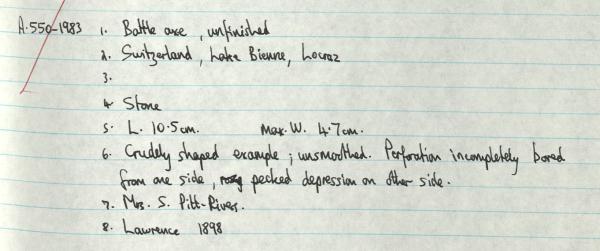 A.550-1983 1. Battle axe, unfinished
2. Switzerland, Lake Bienne, Locraz
3.
4. Stone
5. L. 10.5cm. Max. W. 4.7cm.
6. Crudely shaped example; unsmoothed. Perforation incompletely bored
from one side, pecked depression on other side.
7. Mrs. S. Pitt-Rivers.
8. Lawrence 1898